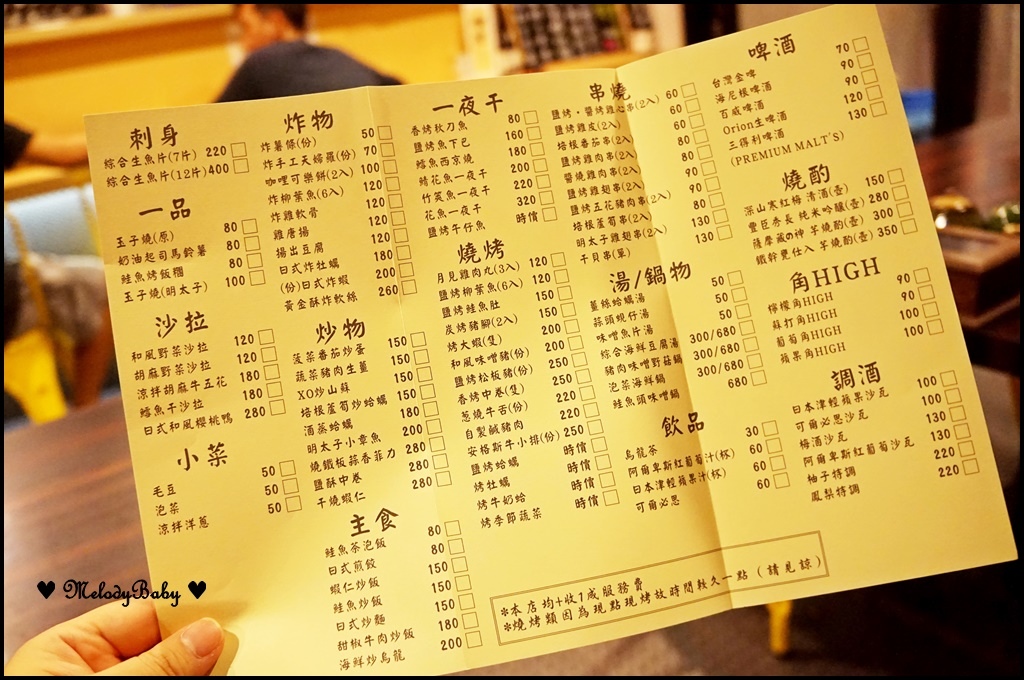 刺身
綜合生魚片(7片) 220
綜合生魚片(12片) 400
一品
玉子燒(原) 80
奶油起司馬鈴薯 80
鮭魚烤飯糰 80
玉子燒(明太子) 100
沙拉
和風野菜沙拉 120
胡麻野菜沙拉 120
涼拌胡麻牛五花 180
鱈魚干沙拉 180
日式和風櫻桃鴨 280
小菜
毛豆 50
泡菜 50
涼拌洋蔥 50
炸物
炸薯條(份) 50
炸手工天婦羅(份) 70
咖哩可樂餅(2入) 100
炸柳葉魚(6入) 120
炸雞軟骨 120
雞唐揚 120
揚出豆腐 120
日式炸牡蠣 180
(份)日式炸蝦 200
黃金酥炸軟絲 260
炒物
菠菜番茄炒蛋 150
蔬菜豬肉生薑 150
XO炒山蘇 150
培根蘆筍炒蛤蠣 150
酒蒸蛤蠣 180
明太子小章魚 200
燒鐵板蒜香菲力 280
鹽酥中卷 280
干燒蝦仁 280
主食
鮭魚茶泡飯 80
日式煎餃 80
蝦仁炒飯 80
鮭魚炒飯 80
日式炒麵 80
甜椒牛肉炒飯 110
海鮮炒烏龍 200
一夜干
香烤秋刀魚 80
鹽烤魚下巴 160
鱈魚西京燒 180
鯖花魚一夜干 200
竹筴魚一夜干 220
花魚一夜干 320
鹽烤牛仔魚 時價
燒烤
月見雞肉丸(3入) 120
鹽烤柳葉魚(6入) 120
鹽烤鮭魚肚 150
炭烤豬腳(2入) 150
烤大蝦(隻) 150
和風味噌豬(份) 200
鹽烤松板豬(份) 200
香烤中卷(隻) 200
蔥燒牛舌(份) 200
自製鹹豬肉 220
安格斯牛小排(份) 250
鹽烤蛤蠣 時價
烤牡蠣 時價
烤牛奶蛤 時價
烤季節蔬菜 時價
串燒
鹽烤·醬烤雞心串(2入) 60
鹽烤雞皮(2入) 60
培根番茄串(2入) 60
鹽烤雞肉串(2入) 80
醬燒雞肉串(2入) 80
鹽烤雞翅串(2入) 80
鹽烤五花豬肉串(2入) 90
培根蘆筍串(2入) 80
明太子雞翅串(2入) 130
干貝串(單) 130
湯/鍋物
薑絲蛤蠣湯 50
蒜頭蜆仔湯 50
味噌魚片湯 50
綜合海鮮豆腐湯 300/680
豬肉味噌野菇鍋 300/680
泡菜海鮮鍋 300/680
鮭魚頭味噌鍋 680
飲品
烏龍茶 30
阿爾卑斯紅葡萄汁(杯) 60
日本津輕蘋果汁(杯) 60
可爾必思 60
啤酒
台灣金啤 70
海尼根啤酒 90
百威啤酒 90
Orion生啤酒 120
三得利啤酒 130
(PREMIUM MALT'S)
燒酌
深山寒紅梅 清酒(壺) 150
豊臣秀長 純米吟釀(壺) 280
薩摩藏の神 芋燒酌(壺) 300
鐵幹甕仕入 芋燒酌(壺) 350
角HIGH
檸檬角HIGH 90
蘇打角HIGH 90
葡萄角HIGH 100
蘋果角HIGH 100
調酒
日本津輕蘋果沙瓦 100
可爾必思沙瓦 100
梅酒沙瓦 130
阿爾卑斯紅葡萄沙瓦 130
柚子特調 220
鳳梨特調 220
※本店均+收1成服務費
※燒烤類因為現點現烤故時間較久一點(請見諒)
♥ MelodyBaby ♥